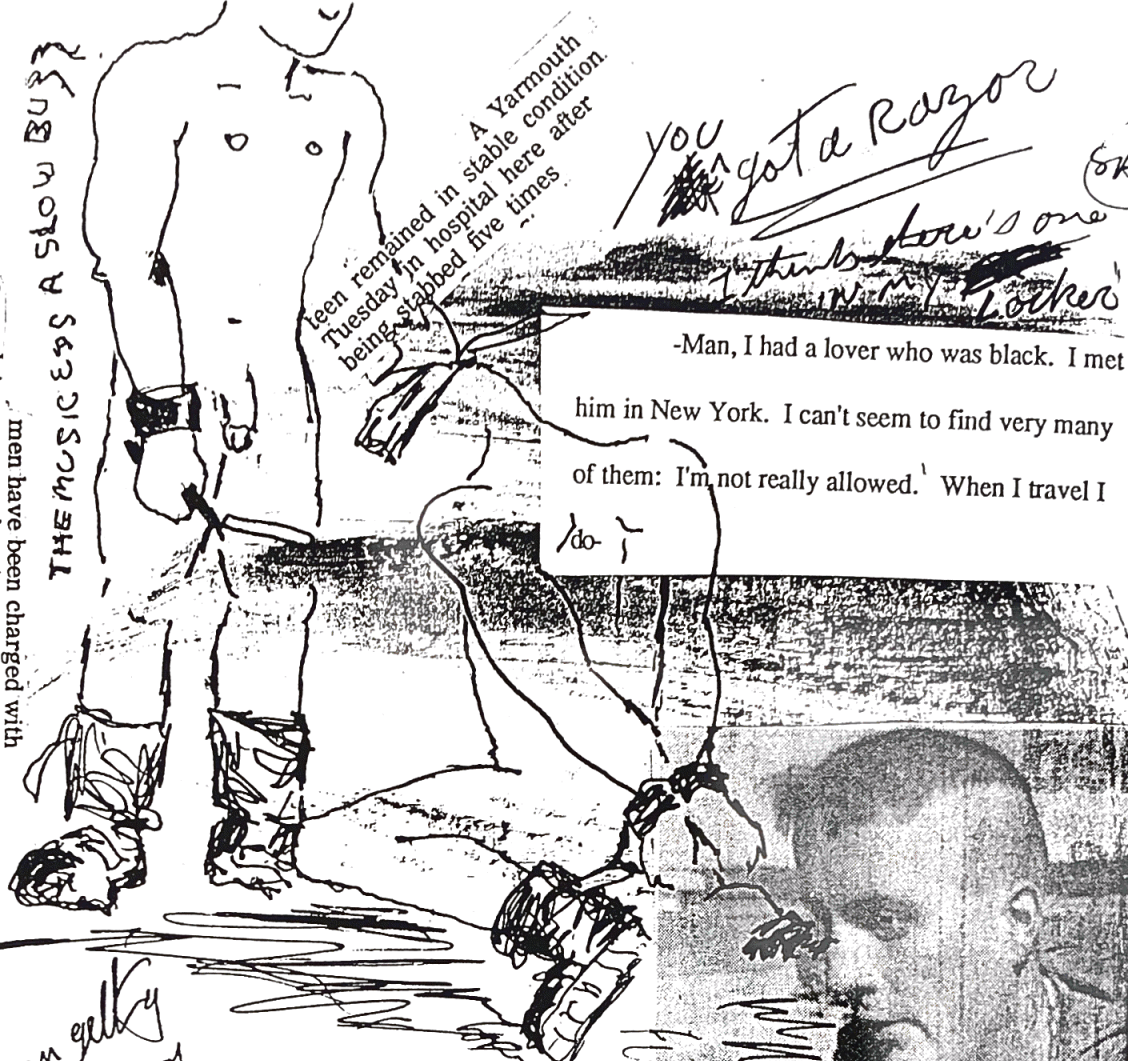 THE MUSIC IS A SLOW BUZZ
A Yarmouth
teen remained in stable condition
Tuesday in hospital here after
being stabbed five times
YOU
got a Razor
I think there's one
IN MY
Locker"
-Man, I had a lover who was black. I met
him in New York. I can't seem to find very many
of them: I'm not really allowed. When I travel I
do-
men have been charged with